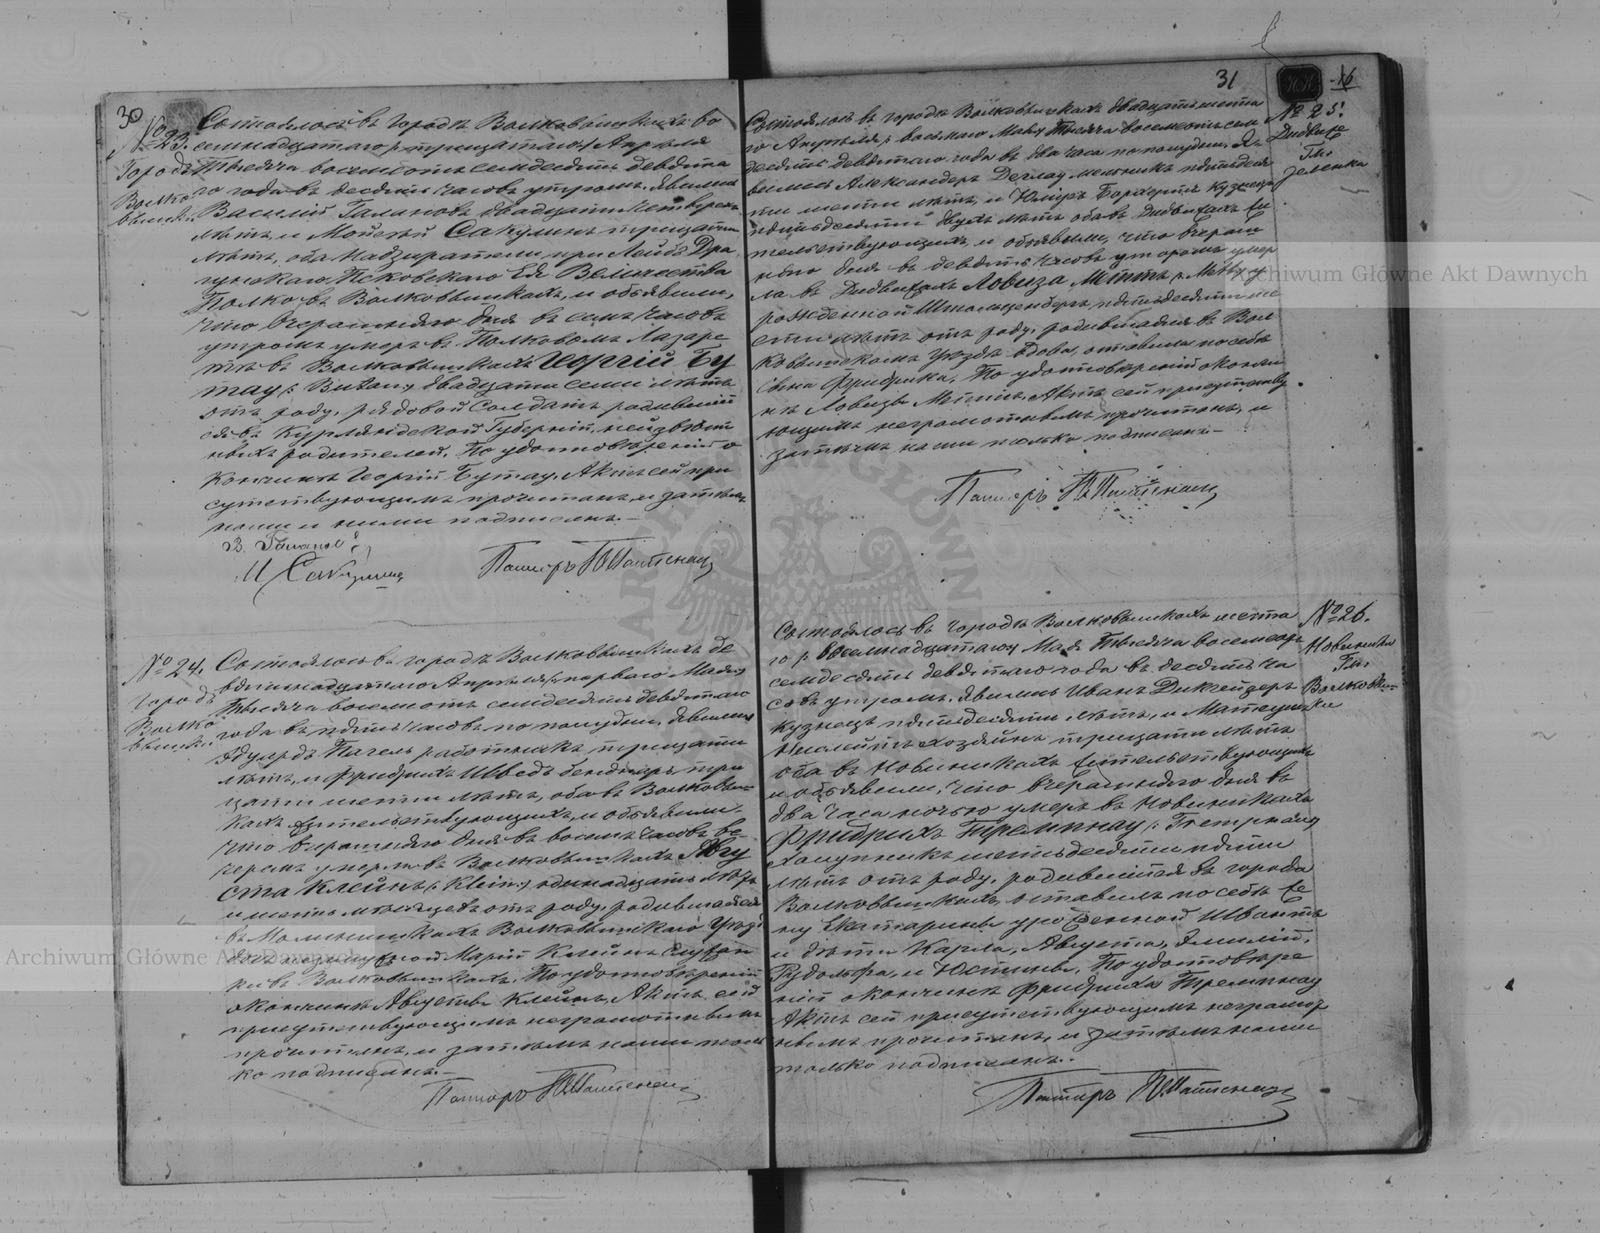 30
№ 23.
Города
Волко
вышки
Состоялось въ городѣ Волковышкахъ во
семнадцатаго/:тридцатаго/ Апрѣля
Тысяча восемьсотъ семдесятъ девята
го года въ десять часовъ утромъ. Явились
Василій Галановъ двадцати четырехъ
лѣтъ, и Мойсей Сакулинъ тридцати
лѣтъ, оба Надзиратели при Лейбъ Дра
гунскаго Псковскаго Ея Величества
Полка въ Волковышкахъ, и объявили,
что вчерашняго дня въ семь часовъ
утромъ умеръ въ Полковомъ Лазаре
тѣ въ Волковышкахъ Георгій Бу
тау, двадцати семи лѣтъ
отъ роду, рядовой Солдатъ родившій
ся въ Курляндской Губерніи, неизвѣст
ныхъ родителей. По удостовѣреніи о
кончинѣ Георгія Бутау, Актъ сей при
сутствующимъ прочитанъ, и затѣмъ
нами и ними подписанъ.—
В. Галановъ
М Сакулинъ
Пасторъ
№ 24.
Городъ
Волко
вышки
Состоялось въ городѣ Волковышкахъ де
вятнадцатаго Апрѣля/:перваго Мая:/
Тысяча восемьсотъ семдесятъ девятаго
года въ пять часовъ по полудни. Явились
Эдуардъ Нагель работникъ тридцати
лѣтъ, и Фридрихъ Шведъ бенднаръ три
дцати шести лѣтъ, оба въ Волковыш
кахъ жительствующихъ, и объявили,
что вчерашняго дня въ восемь часовъ ве
черомъ умерла въ Волковышкахъ Авгу
ста Клейнъ /: Klein:/ одинадцать лѣтъ
и шесть мѣсяцевъ отъ роду, родившаяся
въ Волковышскаго Уѣзд
дочь незамужной Маріи Клейнъ служан
ки въ Волковышкахъ. По удостовѣреніи
о кончинѣ Августы Клейнъ, Актъ сей
присутствующимъ неграмотнымъ
прочитанъ, и затѣмъ нами толь
ко подписанъ.—
Пасторъ
31
16
№ 25.
Дидвиже
Гм:
Зеленка
Состоялось въ городѣ Волковышкахъ двадцать шеста
го Апрѣля/: восьмаго Мая:/ Тысяча восемьсотъ сем
десятъ девятаго года въ два часа по полудни. Я
вились Александеръ Деглау мельникъ пятьдеся
ти шести лѣтъ, и Юліусъ Борхертъ кузнецъ
пятьдесяти двухъ лѣтъ оба въ Дидвижахъ жи
тельствующихъ, и объявили, что вчераш
няго дня въ девять часовъ утромъ умер
ла въ Дидвижахъ Ловиза Мітъ
рожденной Штольценбергъ, пятьдесяти ше
сти лѣтъ отъ роду, родившаяся въ Вол
ковышскомъ Уѣздѣ вдова, оставила по себѣ
сына Фридриха. По удостовѣреніи о кончи
нѣ Ловизы Мітъ, Актъ сей присутству
ющимъ неграмотнымъ прочитанъ, и
затѣмъ нами только подписанъ.—
Пасторъ
№ 26.
Новиники
Гм:
Волковыш
ки
Состоялось въ городѣ Волковышкахъ шеста
го/: восемнадцатаго:/ Мая Тысяча восемьсотъ
семдесятъ девятаго года въ десять ча
совъ утромъ. Явились Иванъ Дикгейзеръ
кузнецъ пятьдесяти лѣтъ, и Матеушъ
хозяинъ тридцати лѣтъ
оба въ Новиникахъ жительствующихъ
и объявили, что вчерашняго дня въ
два часа ночью умеръ въ Новиникахъ
Фридрихъ Тремпнау
халупникъ шестьдесяти пяти
лѣтъ отъ роду, родившійся въ города
Волковышкахъ, оставилъ по себѣ же
ну Екатерину урожденной Швантъ
и дѣти Карла, Августа, Эмилій,
Рудольфа, и Юстины. По удостовѣре
ніи о кончинѣ Фридриха Тремпнау
Актъ сей присутствующимъ неграмот
нымъ прочитанъ, и затѣмъ нами
только подписанъ.—
Пасторъ
Archiwum Główne Akt Dawnych
Archiwum Główne Akt Dawnych